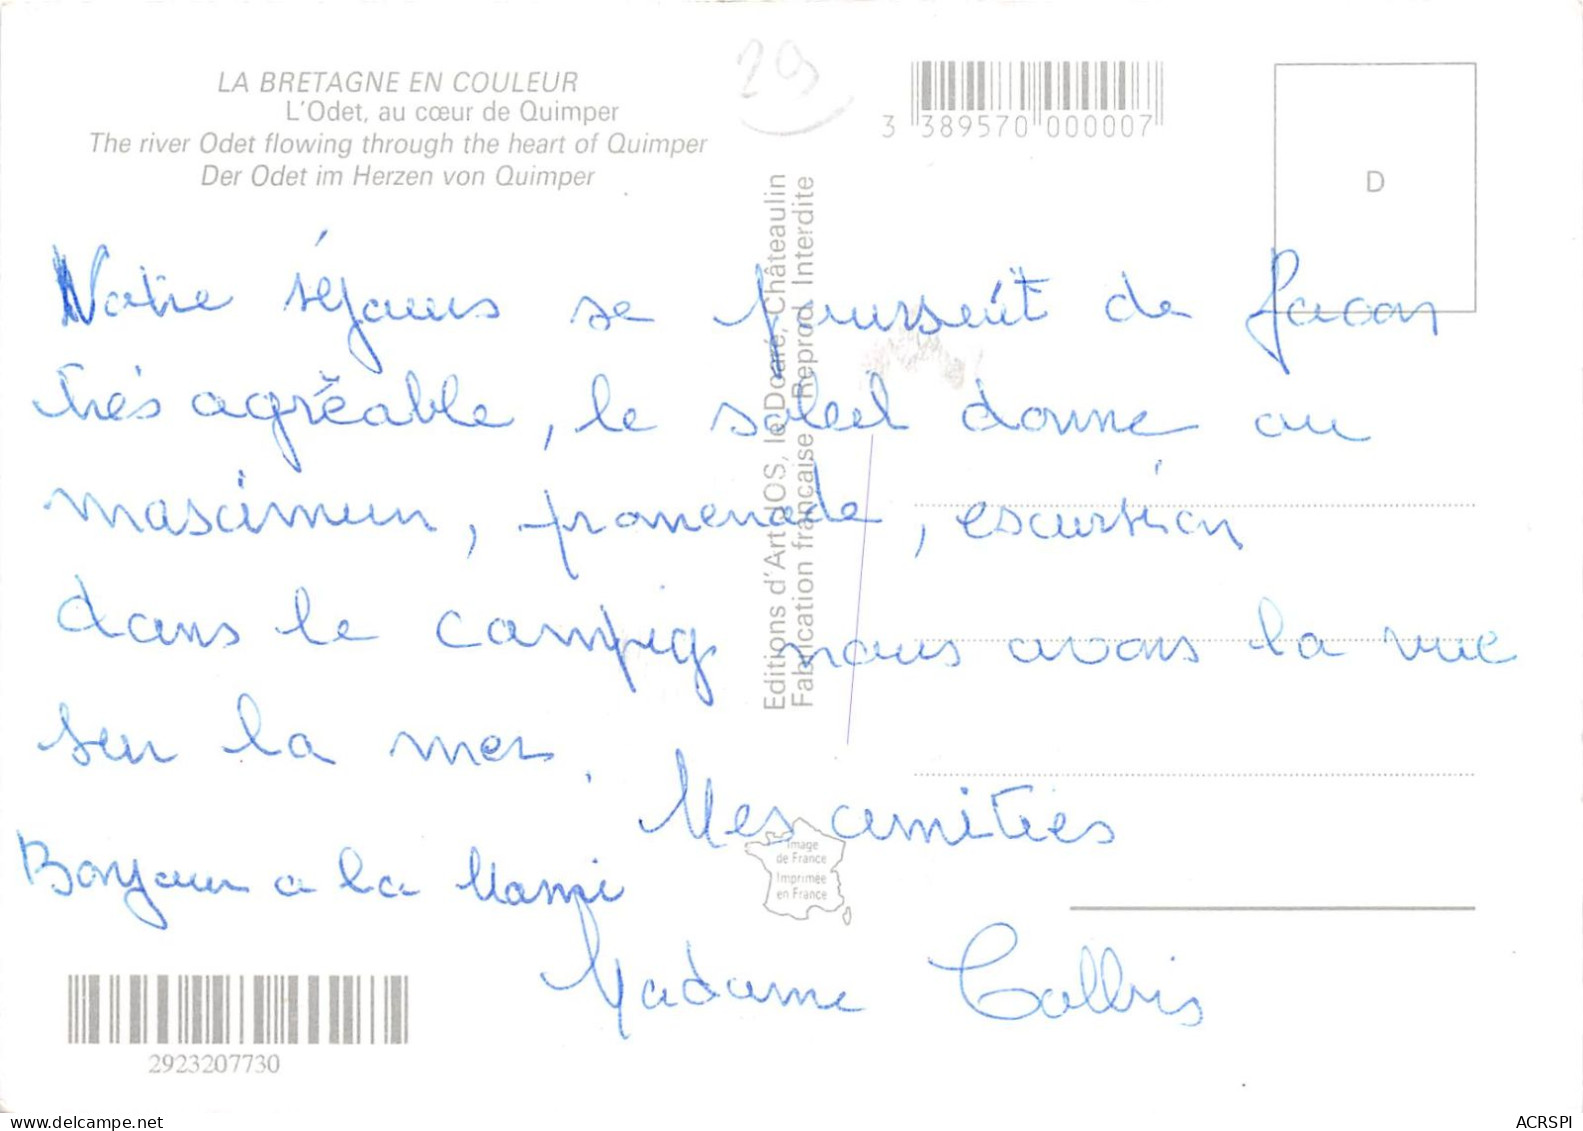 29
LA BRETAGNE EN COULEUR
L'Odet, au cœur de Quimper
The river Odet flowing through the heart of Quimper
Der Odet im Herzen von Quimper
3 389570 000007
D
Editions d'Art JOS, le Doaré, Châteaulin
Fabrication française Reprod. Interdite
Notre séjours se poursuit de facon
très agréable, le soleil donne au
mascimum, promenade, escursion
dans le campig nous avons la vue
sur la mer.
Mes amitiés
Bonjour a la Mami
Madame
Image
de France
Imprimée
en France
2923207730
ACRSPI